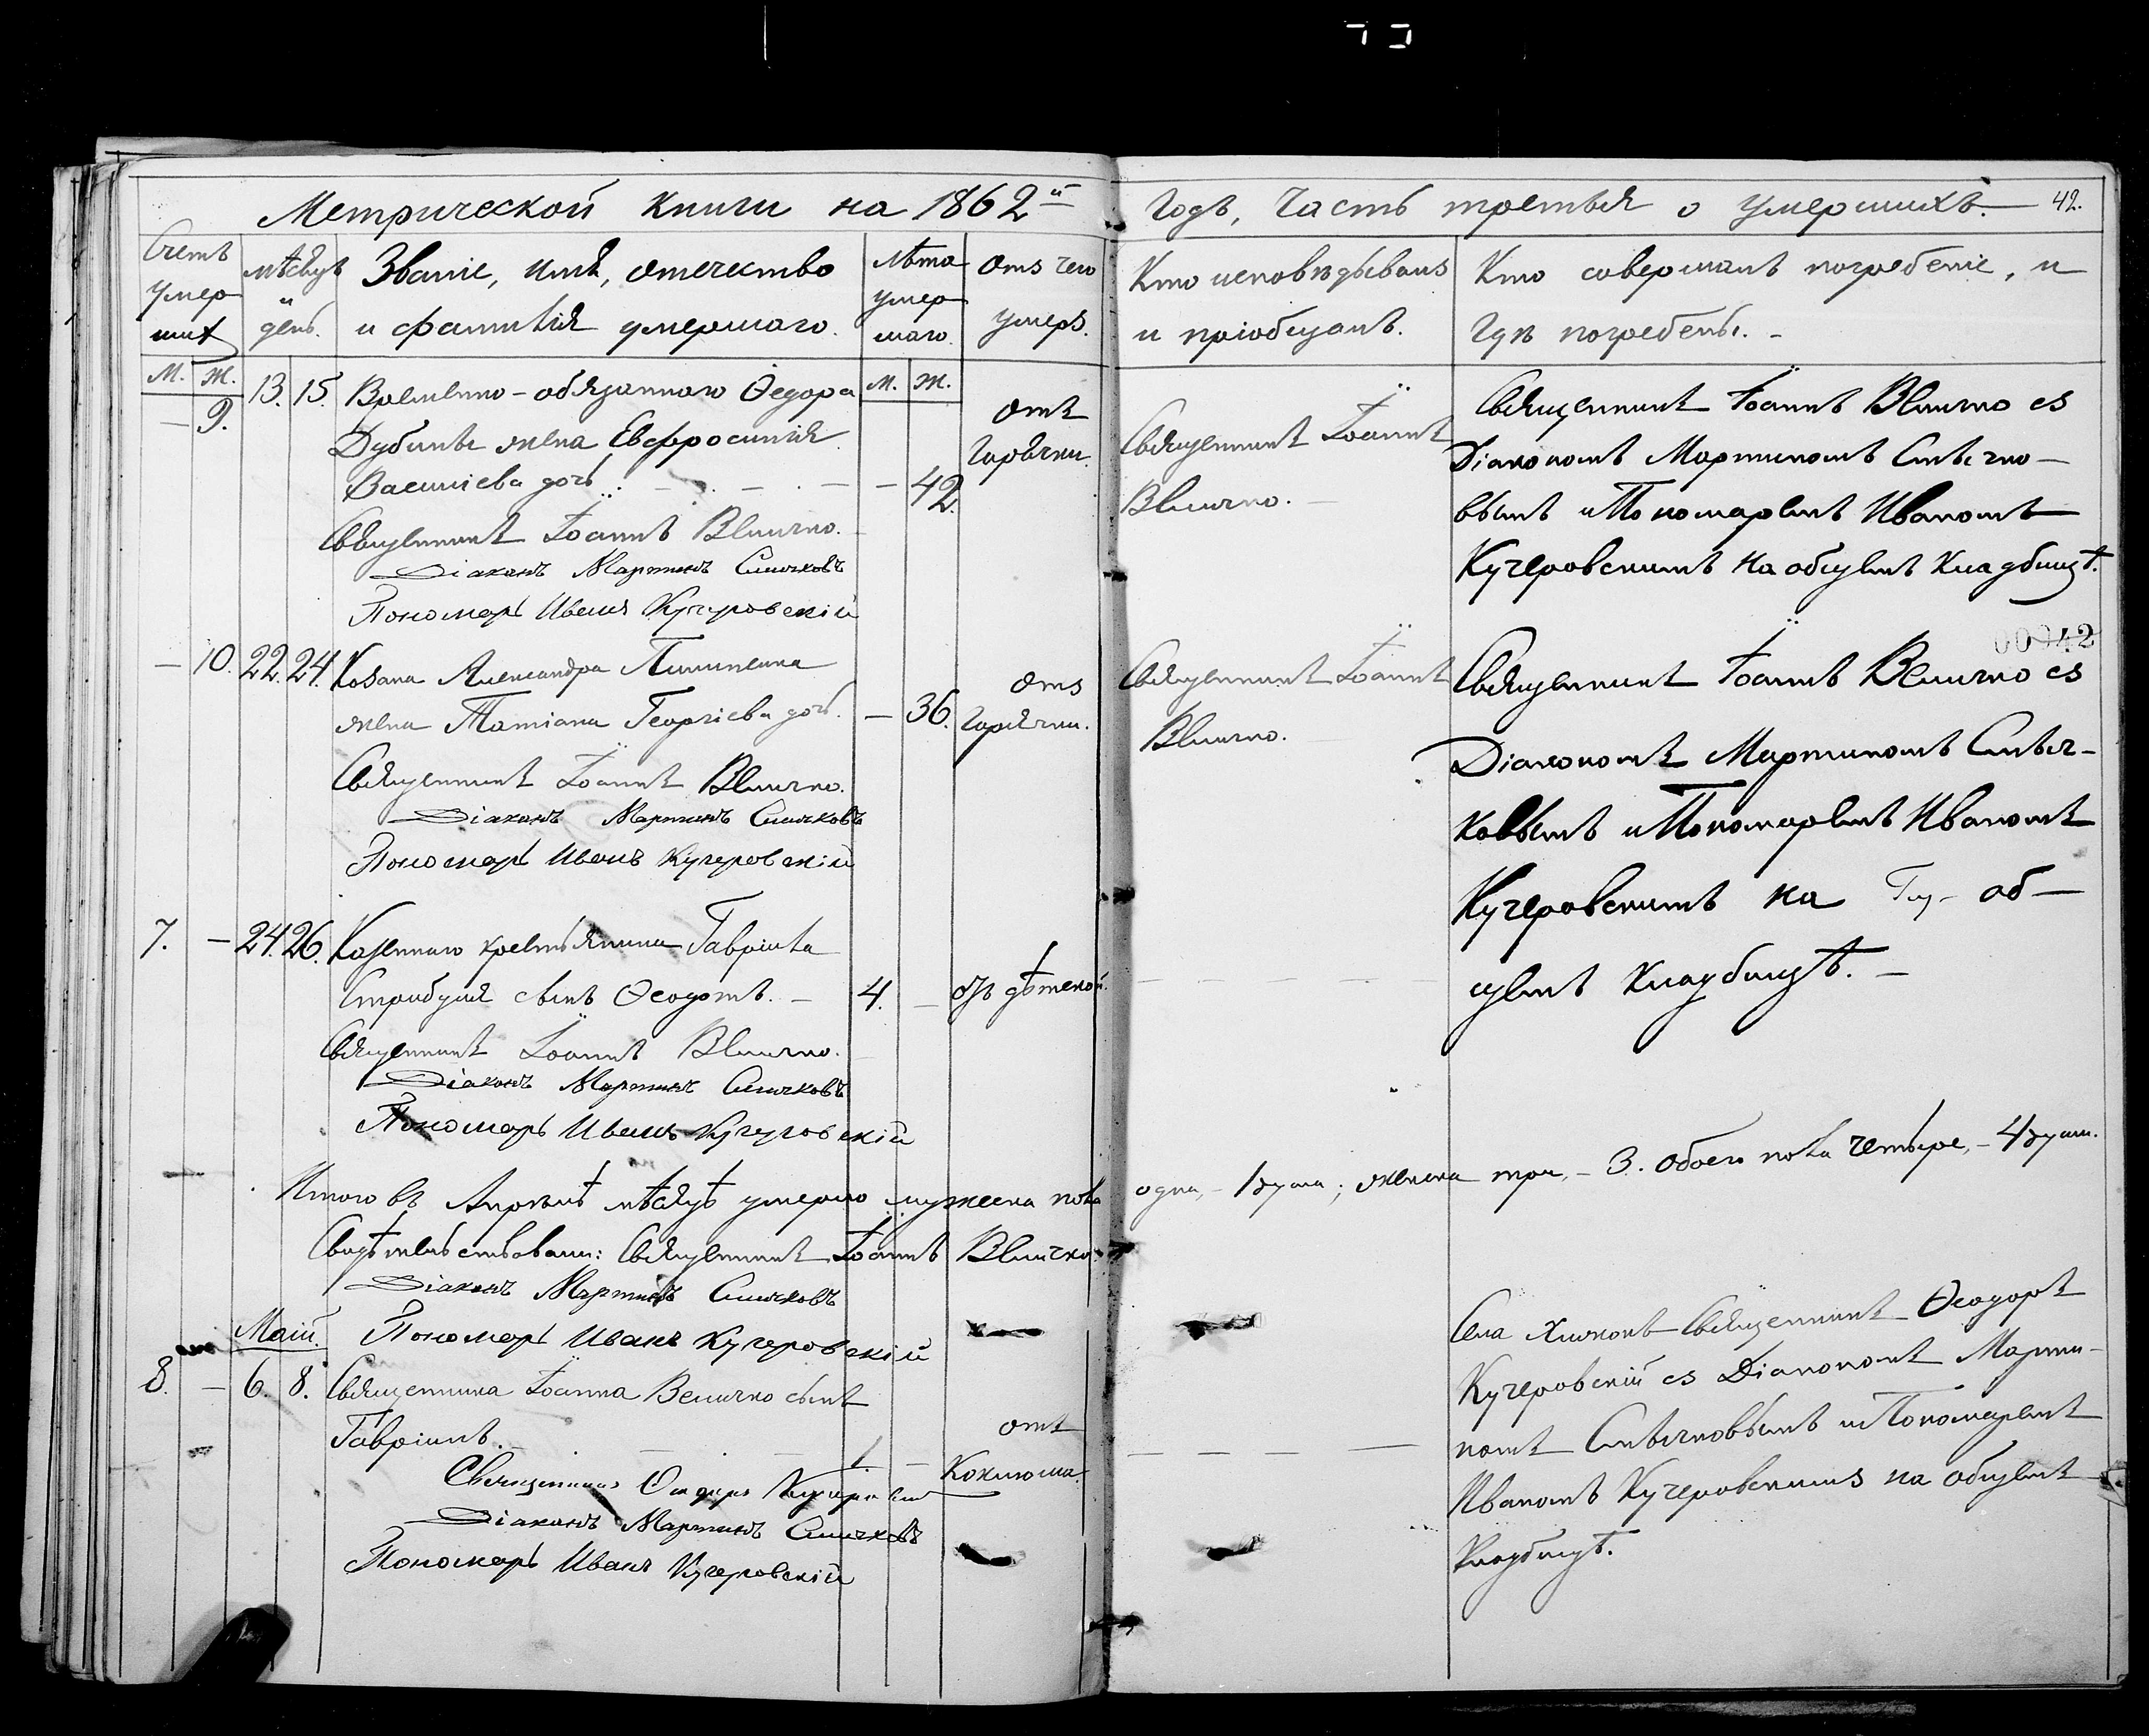 Метрической книги на 1862й
Годъ, Часть третья о умершихъ. 42.
Счетъ умер шихъ
мѣсяцъ и день.
Званіе, имя, отечество
и фамилія умершаго.
Лѣта умер шаго.
Отъ чего умеръ.
Кто исповѣдывалъ
и пріобщалъ.
Кто совершалъ погребеніе, и
гдѣ погребены.
М. Ж.
М. Ж.
— 9. 13. 15. Временно-обязаннаго Ѳедора
Дубины жена Евфросинія
Василіева дочь — 42.
отъ
Горячки.
Священникъ Іоаннъ Величко.
Діаконъ Мартинъ Смычковъ
Пономарь Иванъ Кучеровскій
Священникъ Іоаннъ
Величко.
Священникъ Іоаннъ Величко съ
Діакономъ Мартиномъ Смычко-
вымъ и Пономаремъ Иваномъ
Кучеровскимъ на общемъ кладбищѣ.
00942
— 10. 22. 24. Козака Александра
жена Татіана Георгіева дочь. — 36.
Отъ
Горячки.
Священникъ Іоаннъ Величко.
Діаконъ Мартинъ Смычковъ
Пономарь Иванъ Кучеровскій
Священникъ Іоаннъ
Величко.
Священникъ Іоаннъ Величко съ
Діакономъ Мартиномъ Смыч-
ковымъ и Пономаремъ Иваномъ
Кучеровскимъ на об-
щемъ кладбищѣ.
7. — 24. 26. Казеннаго крестьянина Гавріила
сынъ Ѳеодотъ. — 4. —
Священникъ Іоаннъ Величко.
Діаконъ Мартинъ Смычковъ
Пономарь Иванъ Кучеровскій
Итого въ Апрѣлѣ мѣсяцѣ умерло мужеска пола одна, — 1 душа; женска три, — 3. обоего пола четыре, — 4 души.
Свидѣтельствовали: Священникъ Іоаннъ Величко.
Діаконъ Мартинъ Смычковъ
Пономарь Иванъ Кучеровскій
Маій.
8. — 6. 8. Священника Іоанна Величко сынъ
Гавріилъ. 1. —
отъ
Коклюша
Священникъ Ѳеодоръ Кучеровскій
Діаконъ Мартинъ Смычковъ
Пономарь Иванъ Кучеровскій
Села Священникъ Ѳеодоръ
Кучеровскій съ Діакономъ Марти-
номъ Смычковымъ и Пономаремъ
Иваномъ Кучеровскимъ на общемъ
Кладбищѣ.